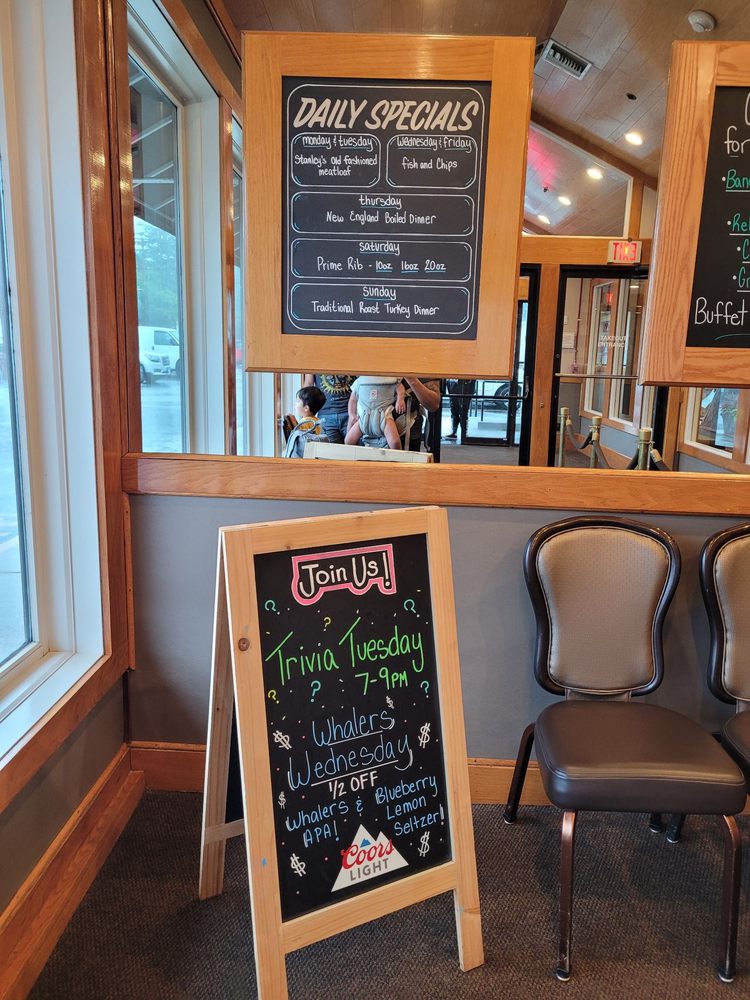 DAILY SPECIALS
monday & tuesday
Stanley's Old fashioned
meatloaf
wednesday & friday
fish and Chips
thursday
New England Boiled Dinner
saturday
Prime Rib - 10oz 16oz 20oz
sunday
Traditional Roast Turkey Dinner
for
Buffet
TAKEOUT
ENTRANCE
EXIT
Join Us!
Trivia Tuesday
7-9PM
Whalers
Wednesday
1/2 OFF
Whalers & Blueberry
APA! Lemon
Seltzer!
Coors
LIGHT